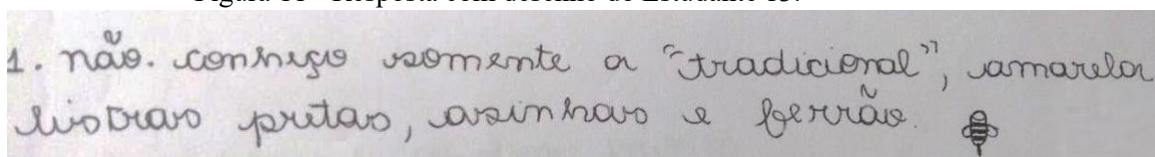 1. não. conheço somente a "tradicional", amarela
listras pretas, asinhas e ferrão.